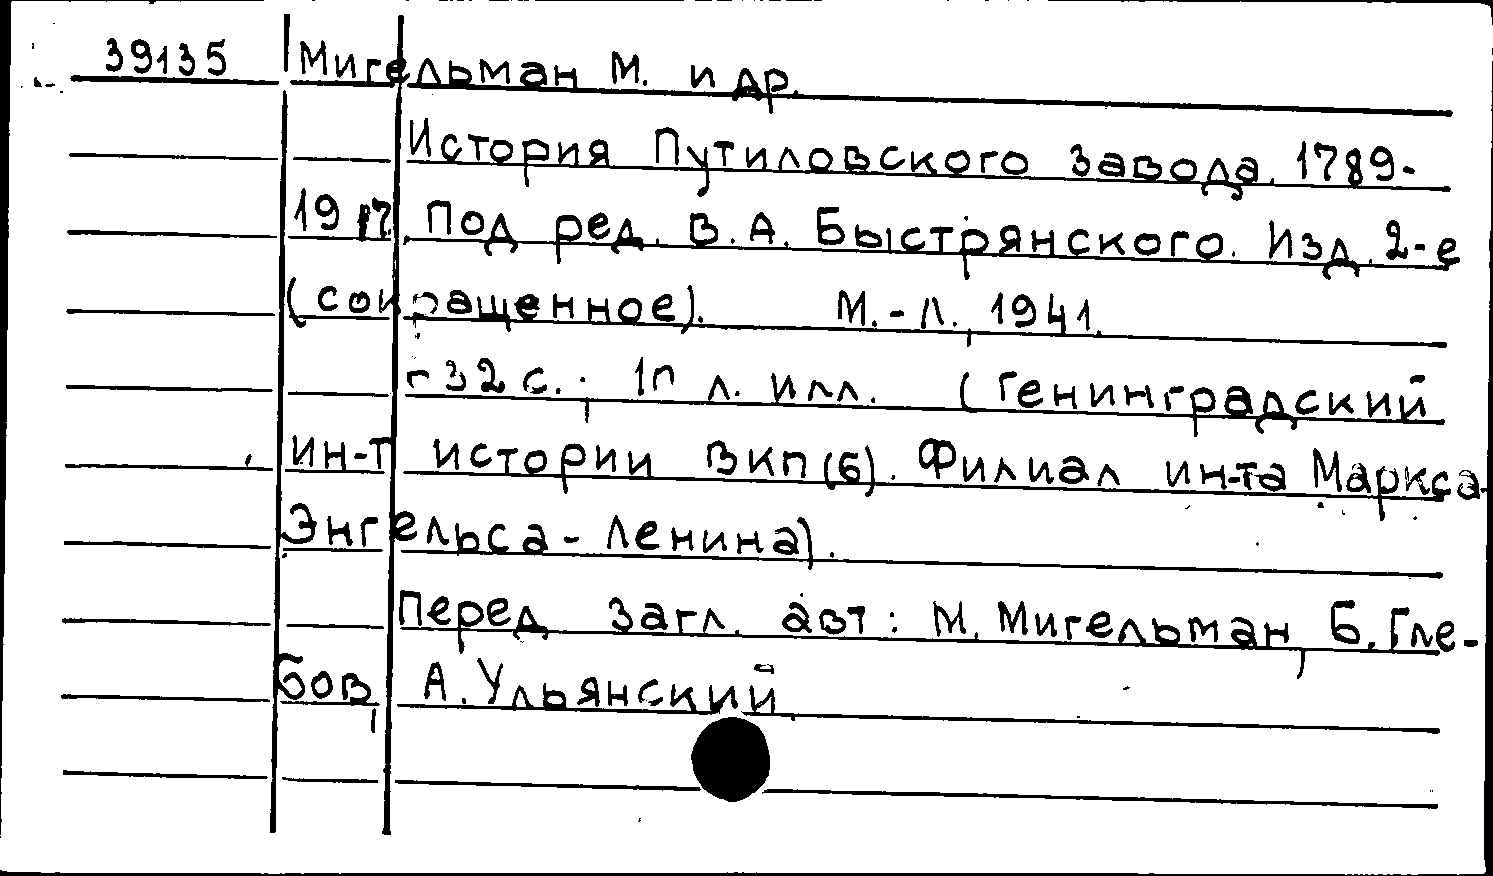 39135 Мигельман М. и др.
История Путиловского завода. 1789-
1917. Под ред. В.А. Быстрянского. Изд. 2-е
(сокращенное). М.-Л., 1941.
с.; л. илл. (Ленинградский
ин-т истории ВКП(б). Филиал ин-та Маркса-
Энгельса-Ленина).
Перед загл. авт: М. Мигельман, Б. Гле-
бов, А. Ульянский.